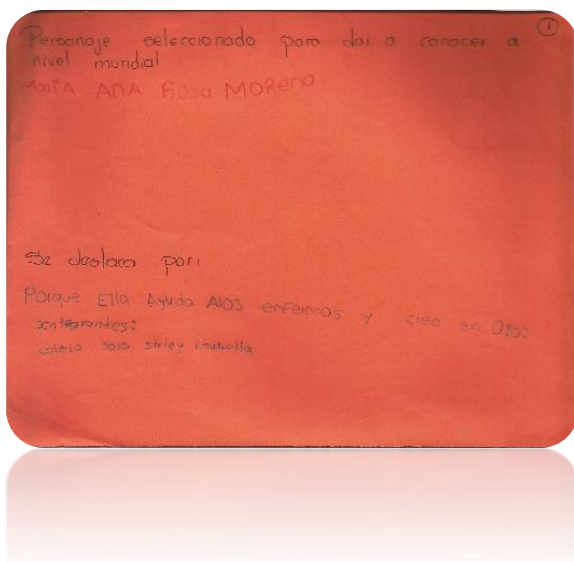 1
Personaje seleccionado para dar a conocer a
nivel mundial
MaríA ANA Rosa MOReno
Se destaca por:
Porque Ella Ayuda Alos enfermos y cree en Dios
integrantes:
valeria sara sirley isabella